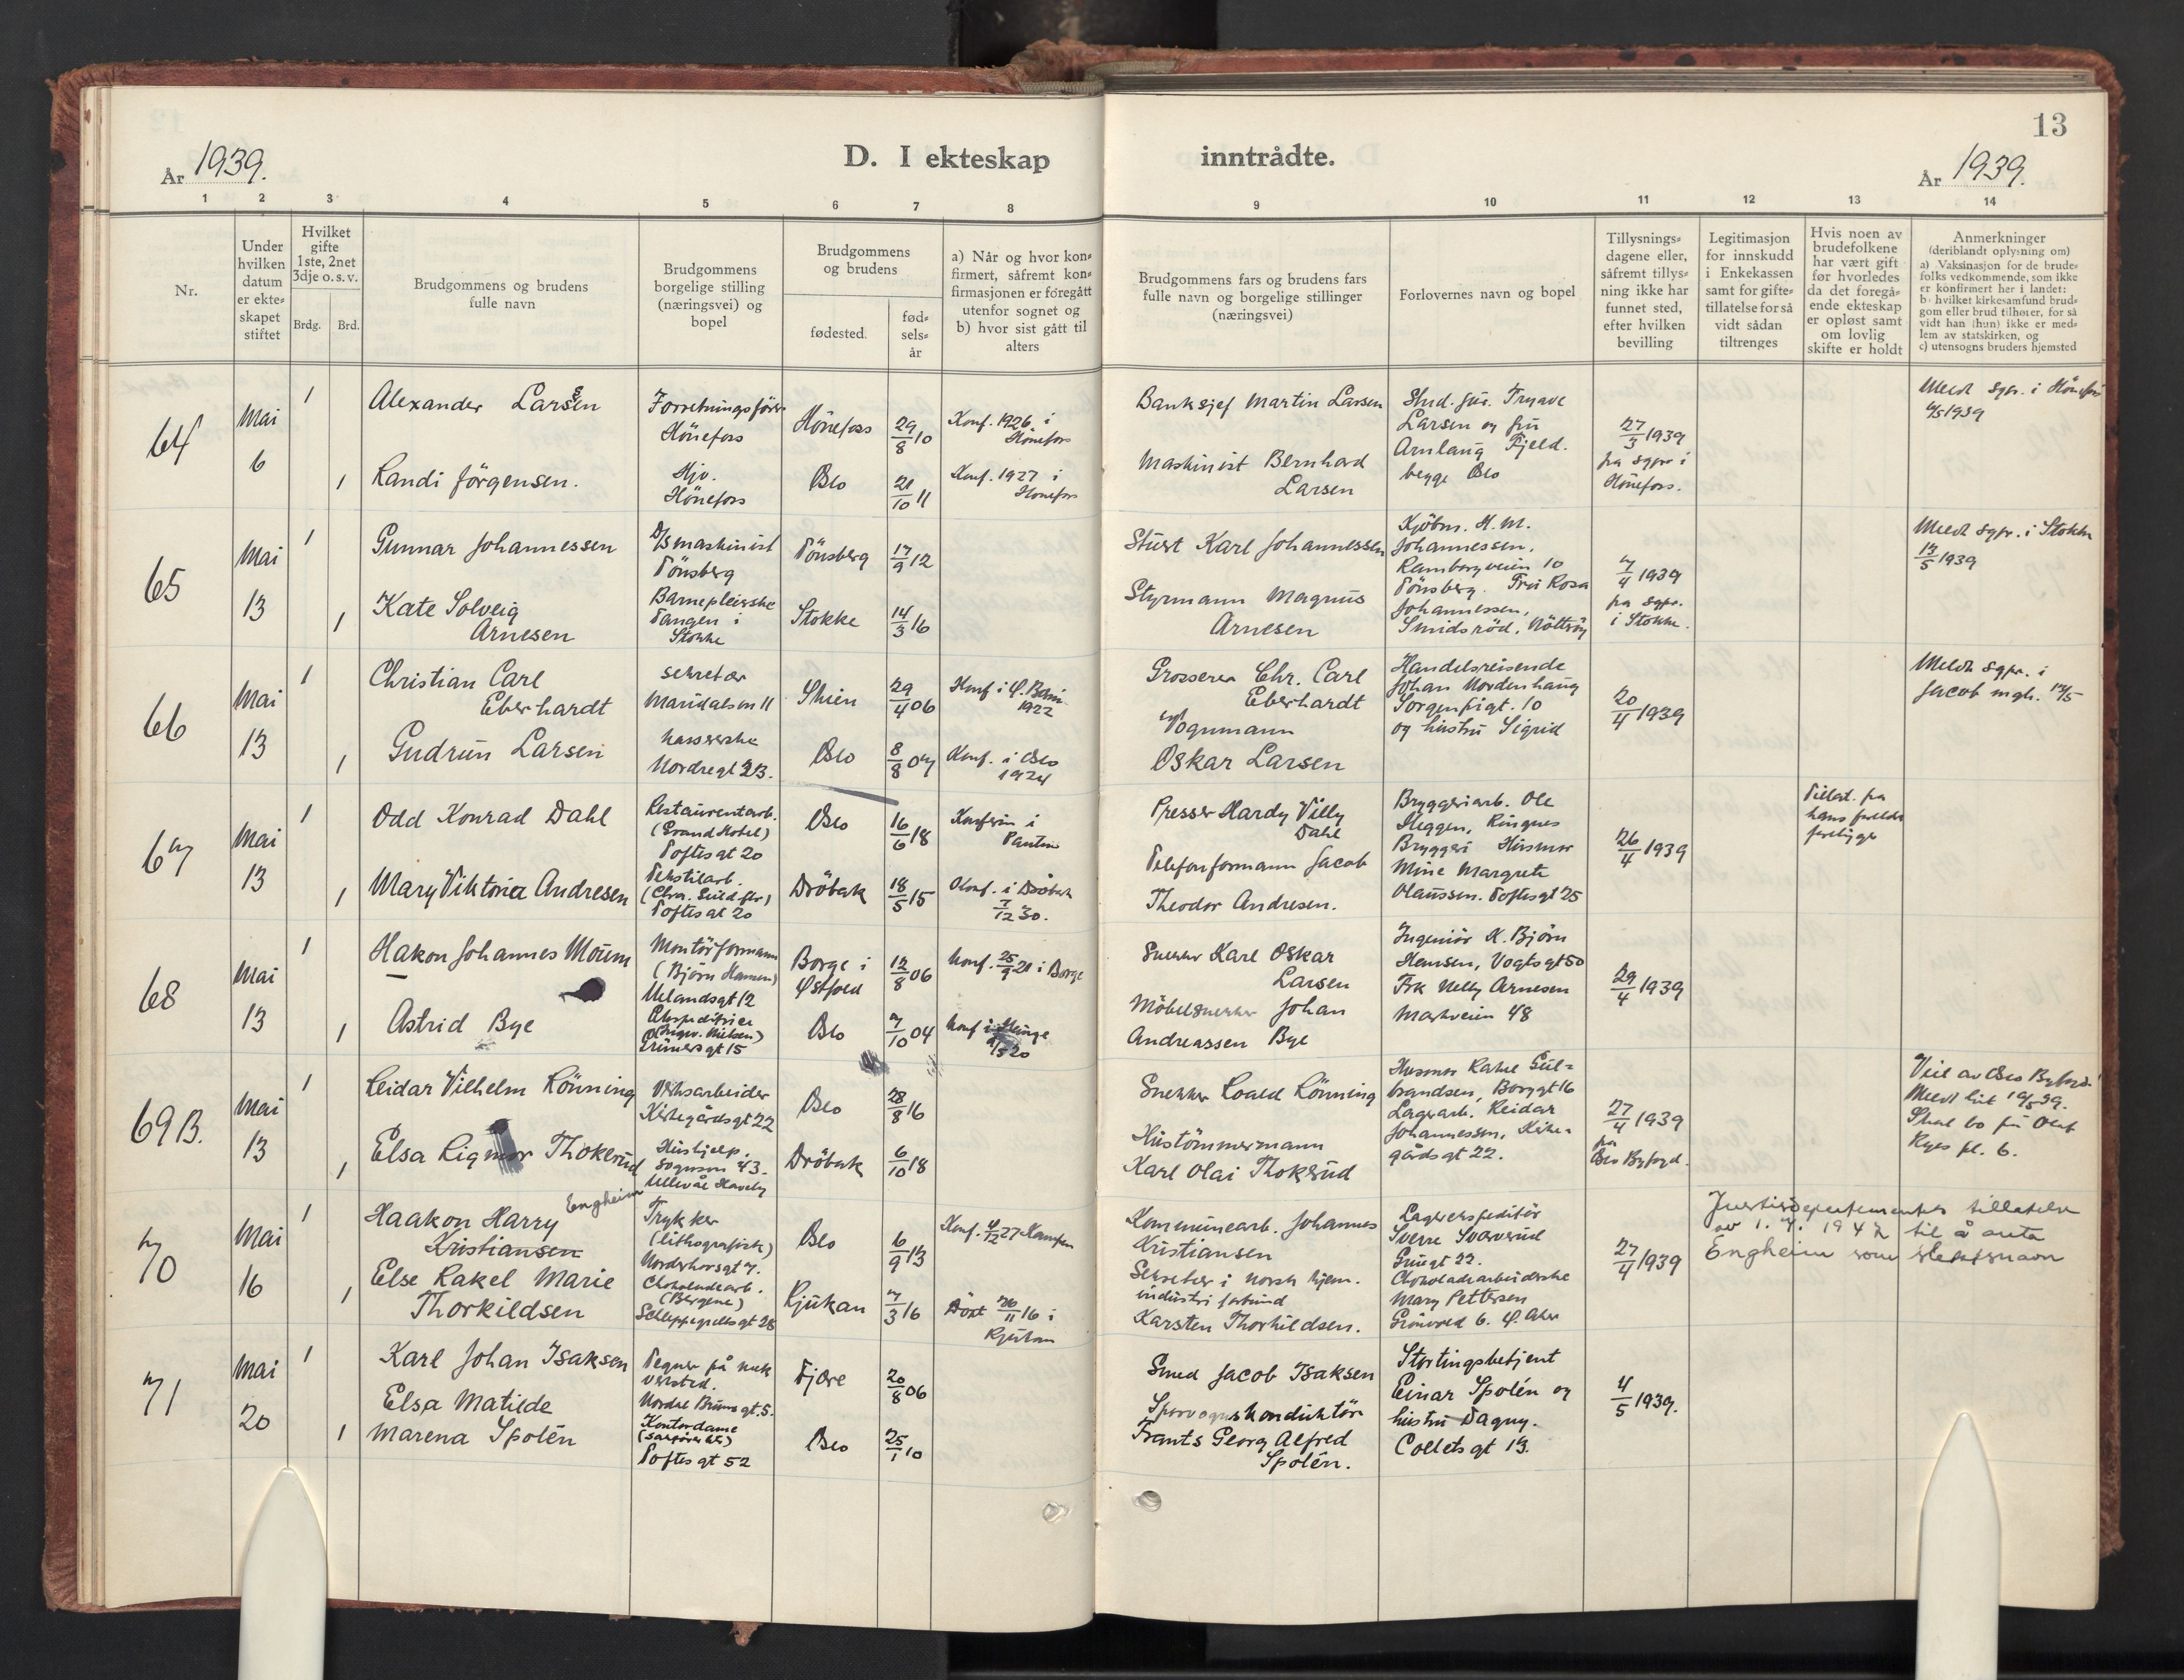 13
År 1939.
D. I ekteskap inntrådte.
År 1939.
1 2 3 4 5 6 7 8 9 10 11 12 13 14
Nr.
Under
hvilken
datum
er ekte-
skapet
stiftet
Hvilket
gifte
1ste, 2net
3dje o. s. v.
Brdg. Brd.
Brudgommens og brudens
fulle navn
Brudgommens
borgelige stilling
(næringsvei) og
bopel
Brudgommens
og brudens
fødested.
fød-
sels-
år
a) Når og hvor kon-
firmert, såfremt kon-
firmasjonen er foregått
utenfor sognet og
b) hvor sist gått til
alters
Brudgommens fars og brudens fars
fulle navn og borgelige stillinger
(næringsvei)
Forlovernes navn og bopel
Tillysnings-
dagene eller,
såfremt tillys-
ning ikke har
funnet sted,
efter hvilken
bevilling
Legitimasjon
for innskudd
i Enkekassen
samt for gifte-
tillatelse for så
vidt sådan
tiltrenges
Hvis noen av
brudefolkene
har vært gift
før hvorledes
da det foregå-
ende ekteskap
er opløst samt
om lovlig
skifte er holdt
Anmerkninger
(deriblandt oplysning om)
a) Vaksinasjon for de brude-
folks vedkommende, som ikke
er konfirmert her i landet:
b) hvilket kirkesamfund brud-
gom eller brud tilhører, for så
vidt han (hun) ikke er med-
lem av statskirken, og
c) utensogns bruders hjemsted
64
Mai
6
1
Alexander Larsen
Forretningsfører
Hönefoss
Hönefoss
29/8 10
Konf. 1926 i
Hönefoss
Banksjef Martin Larsen
Stud. jur. Trygve
Larsen og fru
Arnlaug Fjeld.
begge Oslo
27/3 1939
fra sgpr. i
Hönefoss.
Meldt sgpr. i Hönefoss
6/5 1939
1
Randi Jörgensen.
Hjv.
Hönefoss
Oslo
21/10 11
Konf. 1927 i
Hönefoss
Maskinist Bernhard
Larsen
65
Mai
13
1
Gunnar Johannessen
D/S maskinist
Tönsberg
Tönsberg
17/9 12
Stuert Karl Johannessen
Kjöbm. H. M.
Johannessen.
Rambergveien 10
Tönsberg. Fru Rosa
Johannessen,
Smidsröd, Nötteröy
7/4 1939
fra sgpr.
i Stokke.
Meldt sgpr. i Stokke
13/5 1939
1
Kate Solveig
Arnesen
Barnepleierske
Tangen i
Stokke
Stokke
14/3 16
Styrmann Magnus
Arnesen
66
Mai
13
1
Christian Carl
Eberhardt
sekretær
Maridalsvn 11
Skien
29/4 06
Konf i Ø. Bam.
1922
Grosserer Chr. Carl
Eberhardt
Handelsreisende
Johan Nordenhaug
Sorgenfrigt. 10
og hustru Sigrid
20/4 1939
Meldt sgpr. i
Jacob mgh.
1
Gudrun Larsen
kassererske
Nordregt 23.
Oslo
8/8 07
Konf. i Oslo
1924
Vognmann
Oskar Larsen
67
Mai
13
1
Odd Konrad Dahl
Restaurantarb.
(Grand Hotel)
Toftes gt 20
Oslo
16/6 18
i
Presser Hardy Villy
Dahl
Bryggeriarb. Ole
Heggen, Ringnes
Bryggeri Husmor
Mine Margrete
Olaussen. Toftesgt 25
26/4 1939
Tillat. fra
hans foreldre
foreligge
1
Mary Viktoria Andresen
Tekstilarb.
Toftes gt 20
Dröbak
18/5 15
Konf. i Dröbak
7/12 30.
Telefonformann Jacob
Theodor Andresen.
68
Mai
13
1
Hakon Johannes Moum
Montörformann
(Björn Hansen)
Uelandsgt 12
Borge i
Østfold
12/8 06
Konf. 25/9 21 i Borge
Snekker Karl Oskar
Larsen
Ingeniör K. Björn
Hansen, Vogtsgt 50
Frk Nelly Arnesen
Markveien 48
29/4 1939
1
Astrid Bye
Ekspeditrice
Grüners gt 15
Oslo
7/10 04
Möbelsnekker Johan
Andreassen Bye
69 B.
Mai
13
1
Reidar Vilhelm Rönning
Verksarbeider
Kirkegårdsgt 22
Oslo
28/8 16
Snekker Roald Rönning
Husmor Rakel Gul-
brandsen, Borggt 16
Lagerarb. Reidar
Johannessen, Kirke-
gårds gt 22.
27/4 1939
fra
Oslo Byfogd.
Viet av Oslo Byfogd
Meldt hit 19/5 39.
Skal bo på Olaf
Ryes pl. 6.
1
Elsa Rigmor Thokerud
Hushjelp.
Sognsvn 43.
Ullevål Haveby
Dröbak
6/10 18
Hustömmermann
Karl Olai Thokerud
70
Mai
16
1
Haakon Harry Engheim
Kristiansen
Trykker
(lithografisk)
Norderhovsgt 7.
Oslo
6/9 13
Konf. 4/12 27 Kampen
Kommunearb. Johannes
Kristiansen
Lagerekspeditör
Sverre Sværerud
22.
Chokoladearbeiderske
Mary Pettersen
Grönvold 6. Ø. Aker
27/4 1939
Justisdepartementets tillatelse
av 1. 7. 1947 til å anta
Engheim som slektsnavn
1
Else Rakel Marie
Thorkildsen
Chokoladearb.
(Bergene)
Schleppegrellsgt 28
Rjukan
7/3 16
Döpt 26/11 16 i
Rjukan
Sekretær i norsk hjem.
industri forbund
Karsten Thorkildsen.
71
Mai
20
1
Karl Johan Isaksen
Tegner på mek
versted.
Nordre Bruns gt. 5.
Fjære
20/8 06
Smed Jacob Isaksen
Stortingsbetjent
Einar Spolén og
hustru Dagny.
Collets gt 13.
4/5 1939.
1
Elsa Matilde
Marena Spolén
Kontordame
Toftes gt 52
Oslo
25/1 10
Sporvognskonduktör
Frants Georg Alfred
Spolén.